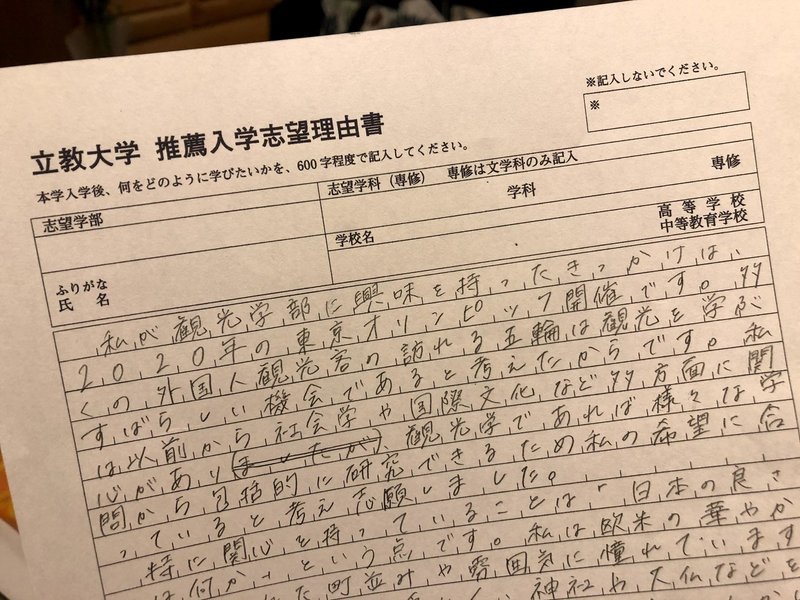 ※記入しないでください。
※
立教大学 推薦入学志望理由書
本学入学後、何をどのように学びたいかを、600字程度で記入してください。
志望学部
志望学科（専修） 専修は文学科のみ記入
学科 専修
ふりがな
氏 名
学校名
高等学校
中等教育学校
私が観光学部に興味を持ったきっかけは、
2020年の東京オリンピック開催です。多
くの外国人観光客の訪れる五輪は観光を学ぶ
すばらしい機会であると考えたからです。私
は以前から社会学や国際文化など多方面に関
心がありましたが、観光学であれば様々な学
問から包括的に研究できるため私の希望に合
っていると考え志願しました。
特に関心を持っていることは「日本の良さ
は何か」という点です。私は欧米の華やか
た町並みや雰囲気に憧れています
神社や大仏などを